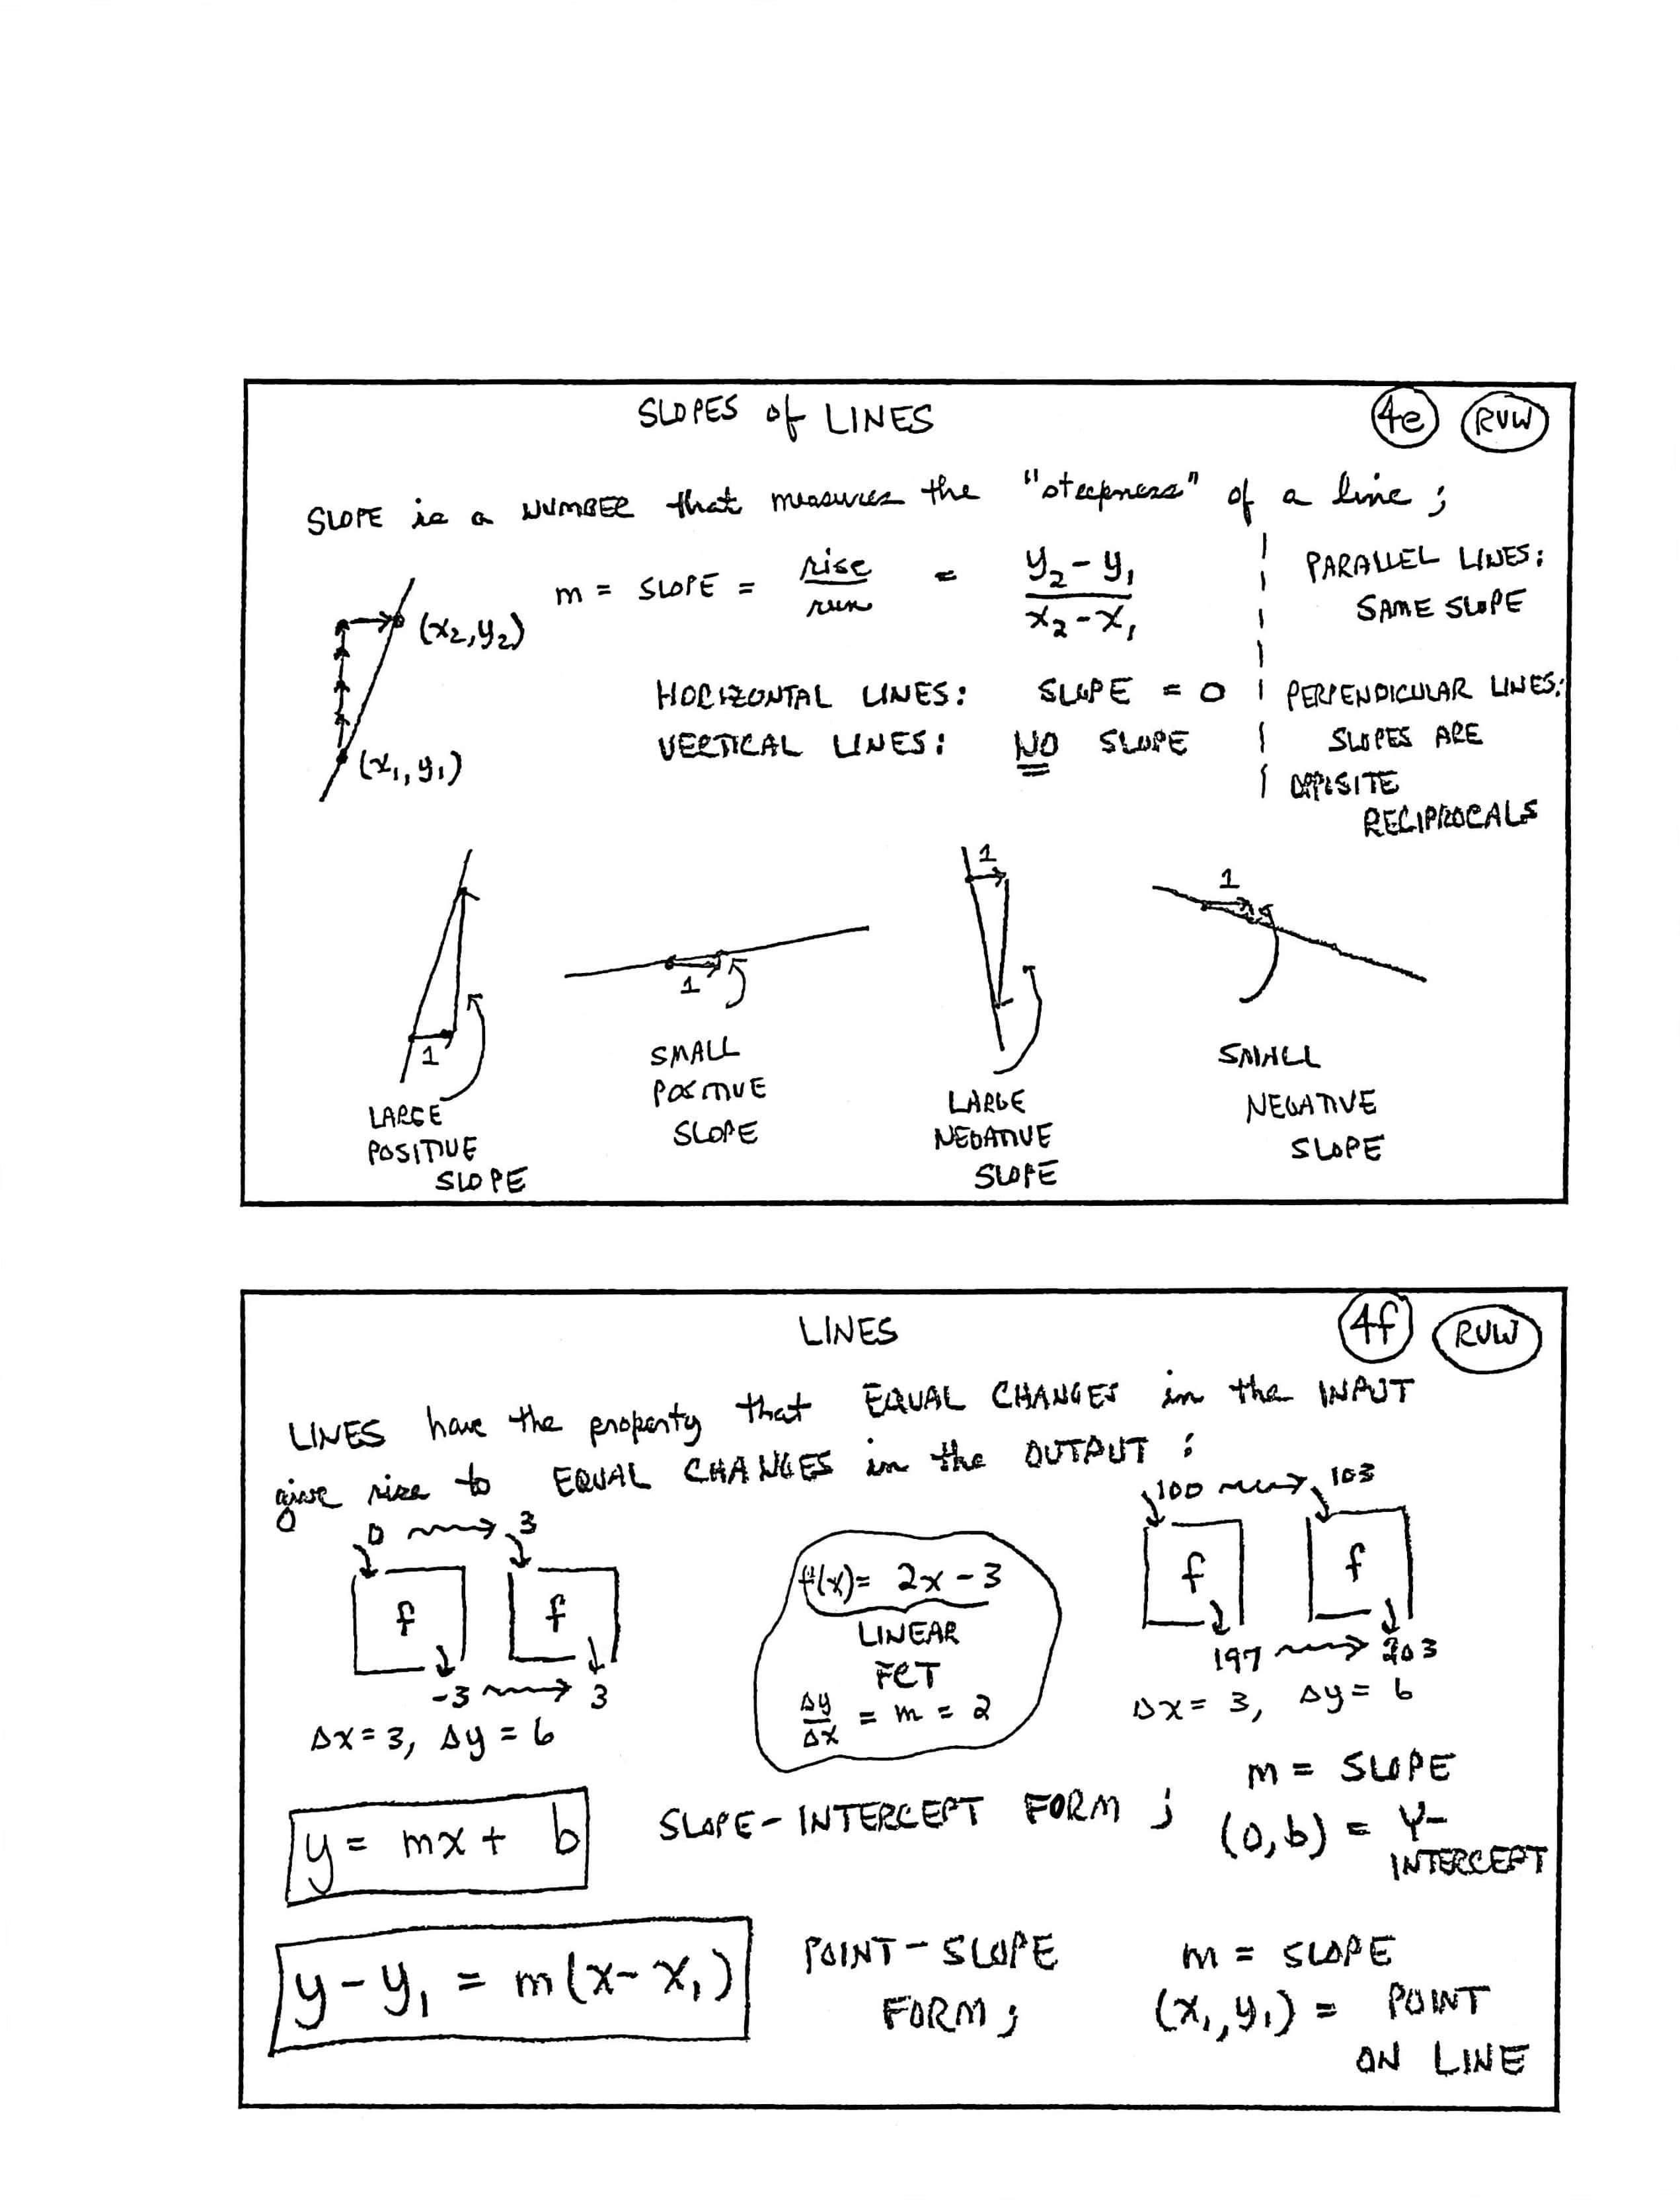 SLOPES of LINES 4e RVW
SLOPE is a NUMBER that measures the "steepness" of a line ;
m = SLOPE = rise/run = (y₂ - y₁)/(x₂ - x₁)
PARALLEL LINES:
SAME SLOPE
(x₂, y₂)
(x₁, y₁)
HORIZONTAL LINES: SLOPE = 0
VERTICAL LINES: NO SLOPE
PERPENDICULAR LINES:
SLOPES ARE
OPPOSITE
RECIPROCALS
1
LARGE
POSITIVE
SLOPE
1
SMALL
POSITIVE
SLOPE
1
LARGE
NEGATIVE
SLOPE
1
SMALL
NEGATIVE
SLOPE
LINES 4f RVW
LINES have the property that EQUAL CHANGES in the INPUT
give rise to EQUAL CHANGES in the OUTPUT :
0 3
f f
-3 3
Δx = 3, Δy = 6
f(x) = 2x - 3
LINEAR
FCT
Δy/Δx = m = 2
100 103
f f
197 203
Δx = 3, Δy = 6
y = mx + b
SLOPE-INTERCEPT FORM ;
m = SLOPE
(0, b) = Y-
INTERCEPT
y - y₁ = m(x - x₁)
POINT-SLOPE
FORM ;
m = SLOPE
(x₁, y₁) = POINT
ON LINE